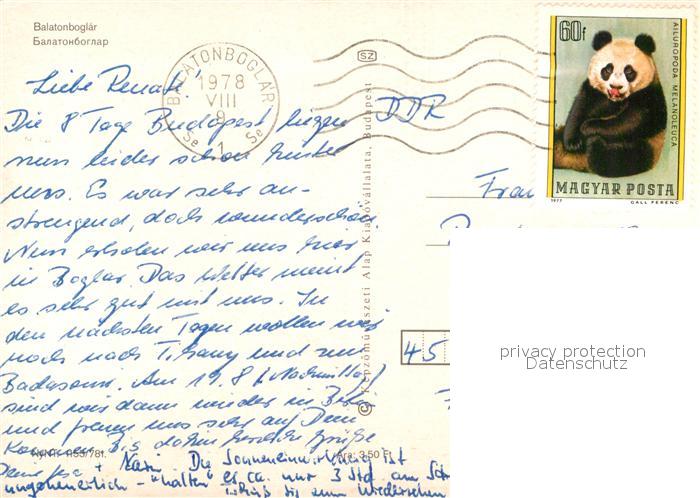 Balatonboglár
Балатонбоглар
BALATONBOGLÁR
1978
VIII
9
1
Se Se
SZ
60f
AILUROPODA MELANOLEUCA
MAGYAR POSTA
1977 GÁLL FERENC
DDR
Liebe Renate!
Die 8 Tage Budapest liegen
nun leider schon hinter
uns. Es war sehr an-
strengend, doch wunderschön.
Nun erholen wir uns hier
in Boglar. Das Wetter meint
es sehr gut mit uns. In
den nächsten Tagen wollen wir
noch nach Tihany und zum
Badacsony. Am 19.8. (Nachmittag)
sind wir dann wieder in
und freuen uns sehr auf Dein
Kommen. Bis dahin herzliche Grüße
Deine + Karin. Die Sonneneinstrahlung ist
ungeheuerlich - "halten" es ca. nur 3 Std. am
bis zum Wiedersehen
Frau
45
Képzőművészeti Alap Kiadóvállalata, Budapest
Ára: 3,50 Ft
privacy protection
Datenschutz